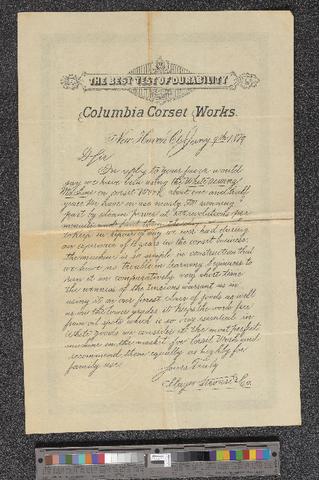 THE BEST TEST OF DURABILITY
Columbia Corset Works.
New Haven Ct. Jany 9th 1879
D Sir
In reply to your favor would
say we have been using the White Sewing
Machine on corset work about one and half
years. We have in use nearly 200 running
part by steam power at revolutions per
minute and find them the
to keep in repair of any we ever had during
our experience of 18 years in the corset business.
the machine is so simple in construction that
we have no trouble in learning beginners to
run it in comparatively very short time
the of the tucions warrant us in
using it on our finest class of goods as well
as on the lower grades it keeps the work free
from oil spots which is so very essential in
White goods we consider it the most perfect
machine in the market for Corset Work and
recommend them equally as highly for
family use.
Yours Truly
Mayer Strouse & Co.